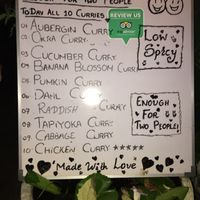 ENOUGH FOR TWO PEOPLE
TODAY ALL 10 CURRIES
REVIEW US
01 AUBERGIN CURRY
02 OKRA CURRY
03 CUCUMBER CURRY
04 BANANA BLOSSOM CURRY
05 PUMKIN CURRY
06 DAHL CURRY
07 RADDISH CURRY
08 TAPIYOKA CURRY
09 CABBAGE CURRY
10 CHICKEN CURRY ★★★★★
LOW
SPICY
ENOUGH
FOR
TWO
PEOPLE!
Made With Love